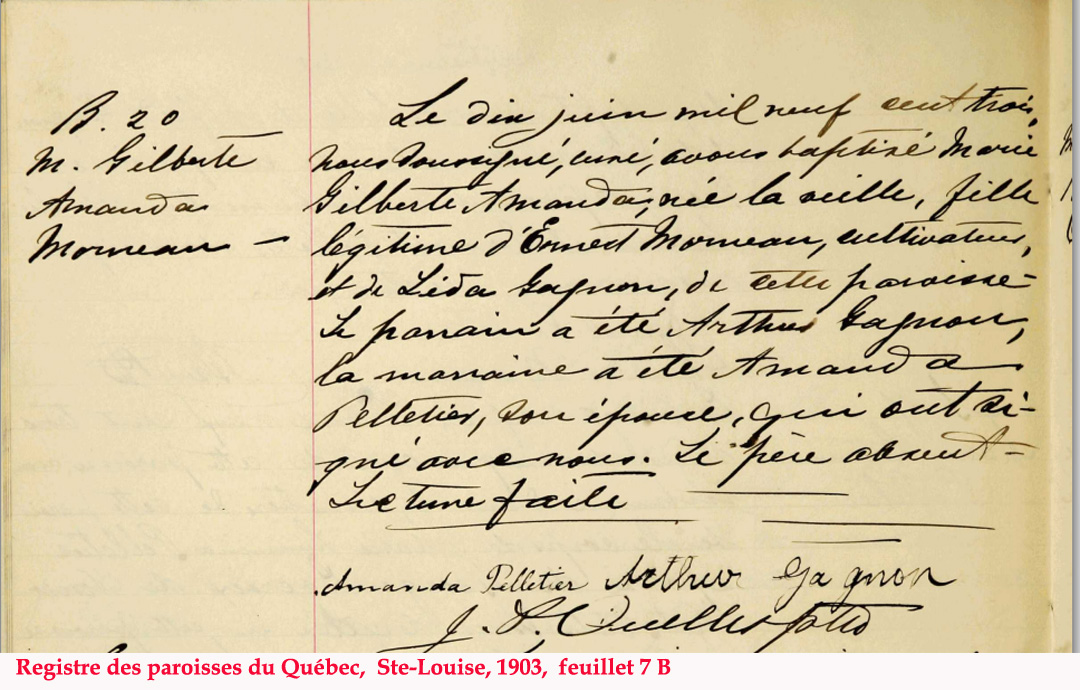 B. 20
M. Gilberte
Amanda
Morneau —
Le dix juin mil neuf cent trois,
nous soussigné, curé, avons baptisé Marie
Gilberte Amanda, née la veille, fille
légitime d'Ernest Morneau, cultivateur,
et de Léda Gagnon, de cette paroisse –
Le parrain a été Arthur Gagnon,
la marraine a été Amanda
Pelletier, son épouse, qui ont si-
gné avec nous. Le père absent –
Lecture faite
Amanda Pelletier Arthur Gagnon
Registre des paroisses du Québec, Ste-Louise, 1903, feuillet 7 B